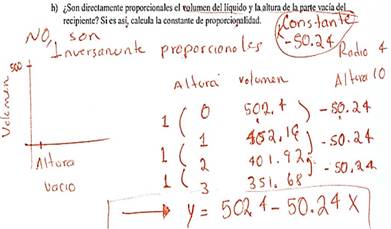 h) ¿Son directamente proporcionales el volumen del líquido y la altura de la parte vacía del
recipiente? Si es así, calcula la constante de proporcionalidad.
Constante
-50.24
NO, son
Inversamente proporcionales
Radio 4
Altura 10
Altura volumen
0 502.4
1 452.16
2 401.92
3 351.68
1
1
1
-50.24
-50.24
-50.24
500
Volumen
Altura
vacio
y = 502.4 - 50.24 x